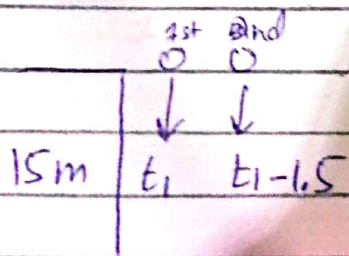 1st 2nd
15m t₁ t₁-1.5